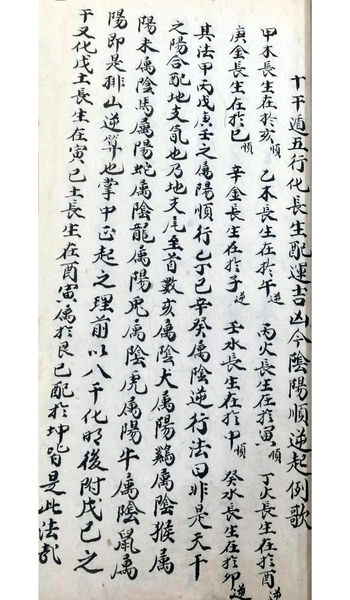 十干遁五行化長生配運吉凶令陰陽順逆起例歌
甲木長生在於亥順 乙木長生在於午逆 丙火長生在於寅順 丁火長生在於酉逆
庚金長生在於巳順 辛金長生在於子逆 壬水長生在於申順 癸水長生在於卯逆
其法甲丙戊庚壬之属陽順行乙丁己辛癸属陰逆行法曰非是天干
之陽合配地支氣也乃地支尾至首數亥属陰犬属陽鷄属陰猴属
陽未属陰馬属陽蛇属陰龍属陽兎属陰虎属陽牛属陰鼠属
陽即是排山逆算也掌中正起之理前以八干化明後附戊己之
干又化戊土長生在寅己土長生在酉寅属於艮己配於坤皆是此法訣